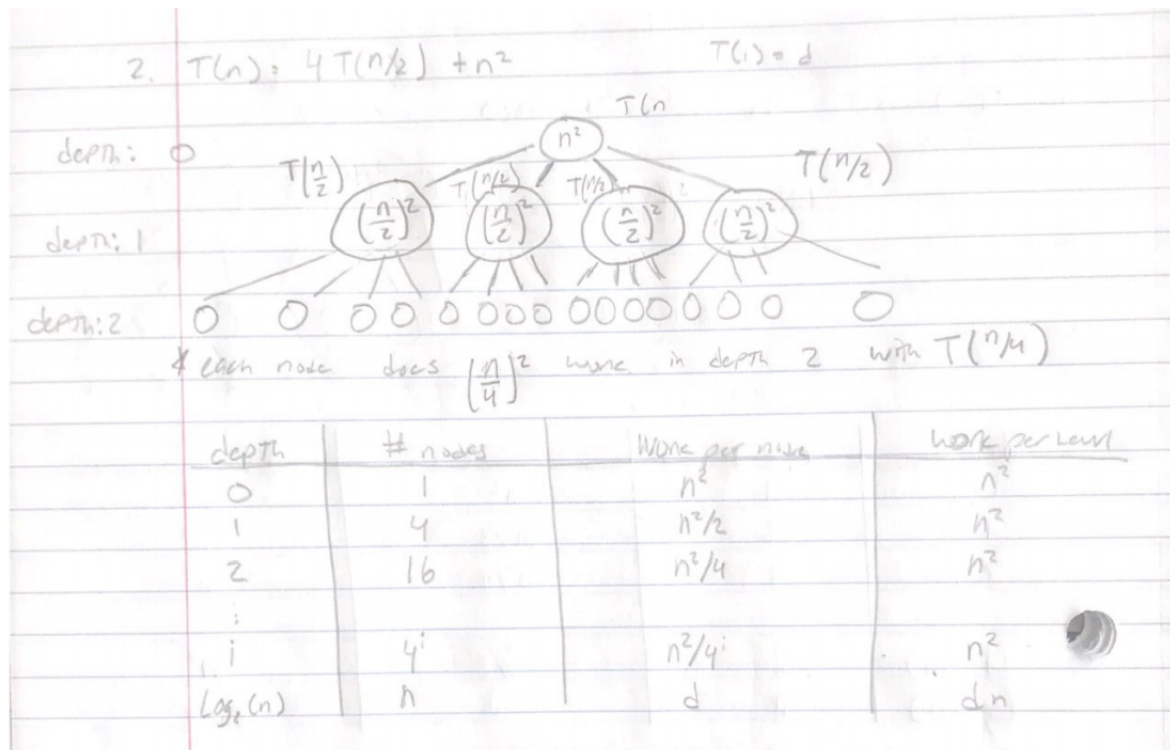 2. T(n) = 4 T(n/2) + n² T(1) = d
T(n
depth: 0 n²
T(n/2) T(n/2) T(n/2) T(n/2)
depth: 1 (n/2)² (n/2)² (n/2)² (n/2)²
depth: 2 0 0 0 0 0 0 0 0 0 0 0 0 0 0 0
* each node does (n/4)² work in depth 2 with T(n/4)
depth # nodes Work per node work per level
0 1 n² n²
1 4 n²/2 n²
2 16 n²/4 n²
:
i 4ⁱ n²/4ⁱ n²
Log₂(n) n d dn